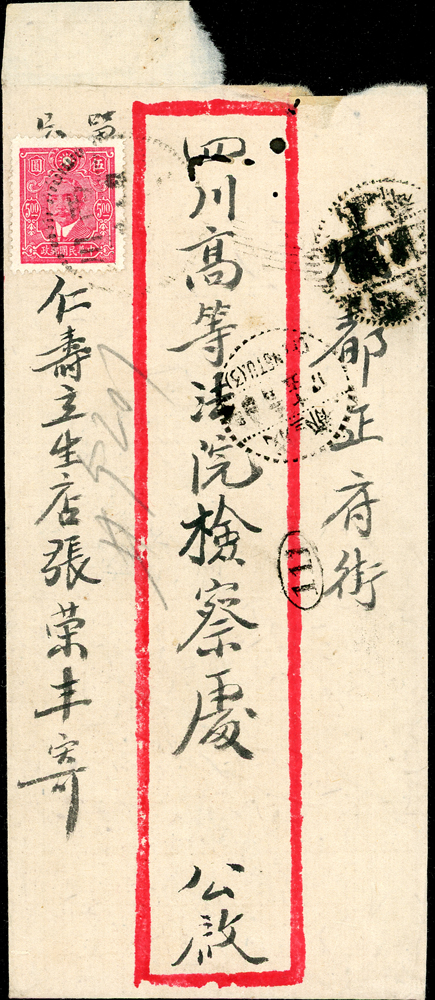 都正府街
四川高等法院檢察處
公啟
仁壽立生店張榮丰寄
伍 圓
5 00 5 00
中華民國郵政